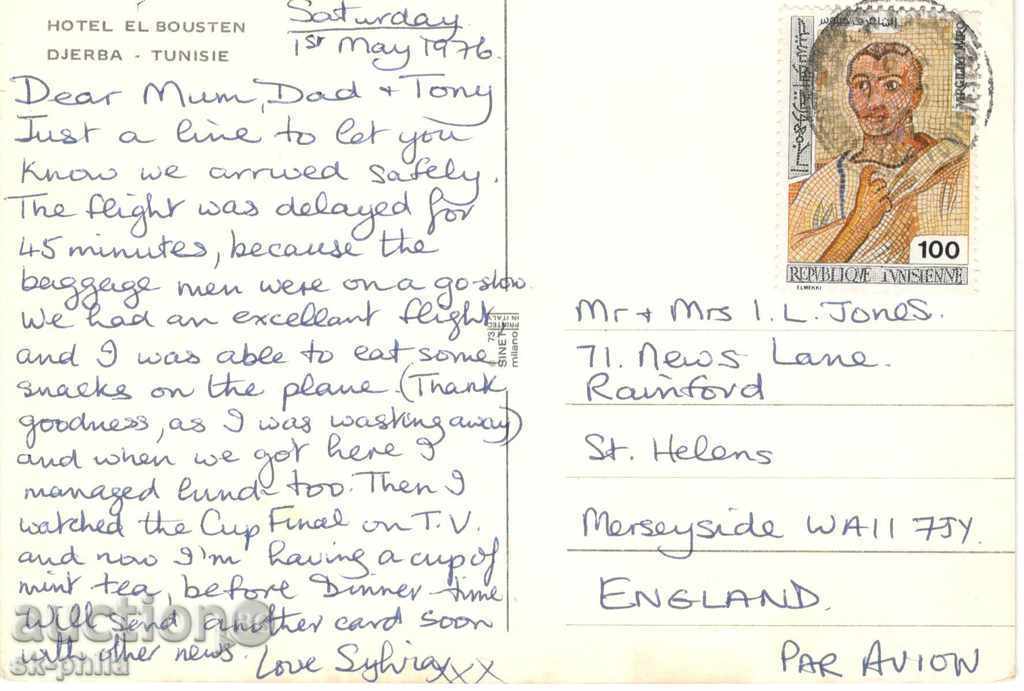 HOTEL EL BOUSTEN
DJERBA - TUNISIE
Saturday
1st May 1976.
Dear Mum, Dad + Tony
Just a line to let you
know we arrived safely.
The flight was delayed for
45 minutes, because the
baggage men were on a go-slow.
We had an excellant flight
and I was able to eat some
snacks on the plane. (Thank
goodness, as I was wasting away)
and when we got here I
managed lunch too. Then I
watched the Cup Final on T.V.
and now I'm having a cup of
mint tea, before Dinner-time
Will send another card soon
with other news.
Love Sylvia xxx
73
SINET
milano
PRINTED
IN ITALY
100
REPVBLIQVE TVNISIENNE
ELMEKKI
Mr + Mrs I. L. Jones.
71. News Lane.
Rainford
St. Helens
Merseyside WA11 7JY.
ENGLAND.
PAR AVION
auction
sk-phila